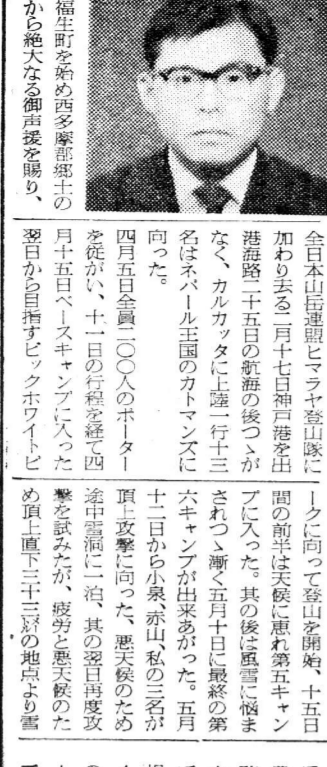 福生町を始め西多摩郡郷土の
から絶大なる御声援を賜り、
全日本山岳連盟ヒマラヤ登山隊に
加わり去る二月十七日神戸港を出
港海路二十五日の航海の後つゝが
なく、カルカッタに上陸一行十三
名はネパール王国のカトマンズに
向った。
四月五日全員二〇〇人のポーター
を従がい、十一日の行程を経て四
月十五日ベースキャンプに入った
翌日から目指すビックホワイトピ
ークに向って登山を開始、十五日
間の前半は天候に恵れ第五キャン
プに入った。其の後は風雪に悩ま
されつゝ漸く五月十日に最終の第
六キャンプが出来あがった。五月
十二日から小泉、赤山、私の三名が
頂上攻撃に向った、悪天候のため
途中雪洞に一泊、其の翌日再度攻
撃を試みたが、疲労と悪天候のた
め頂上直下三十三㍍の地点より雪